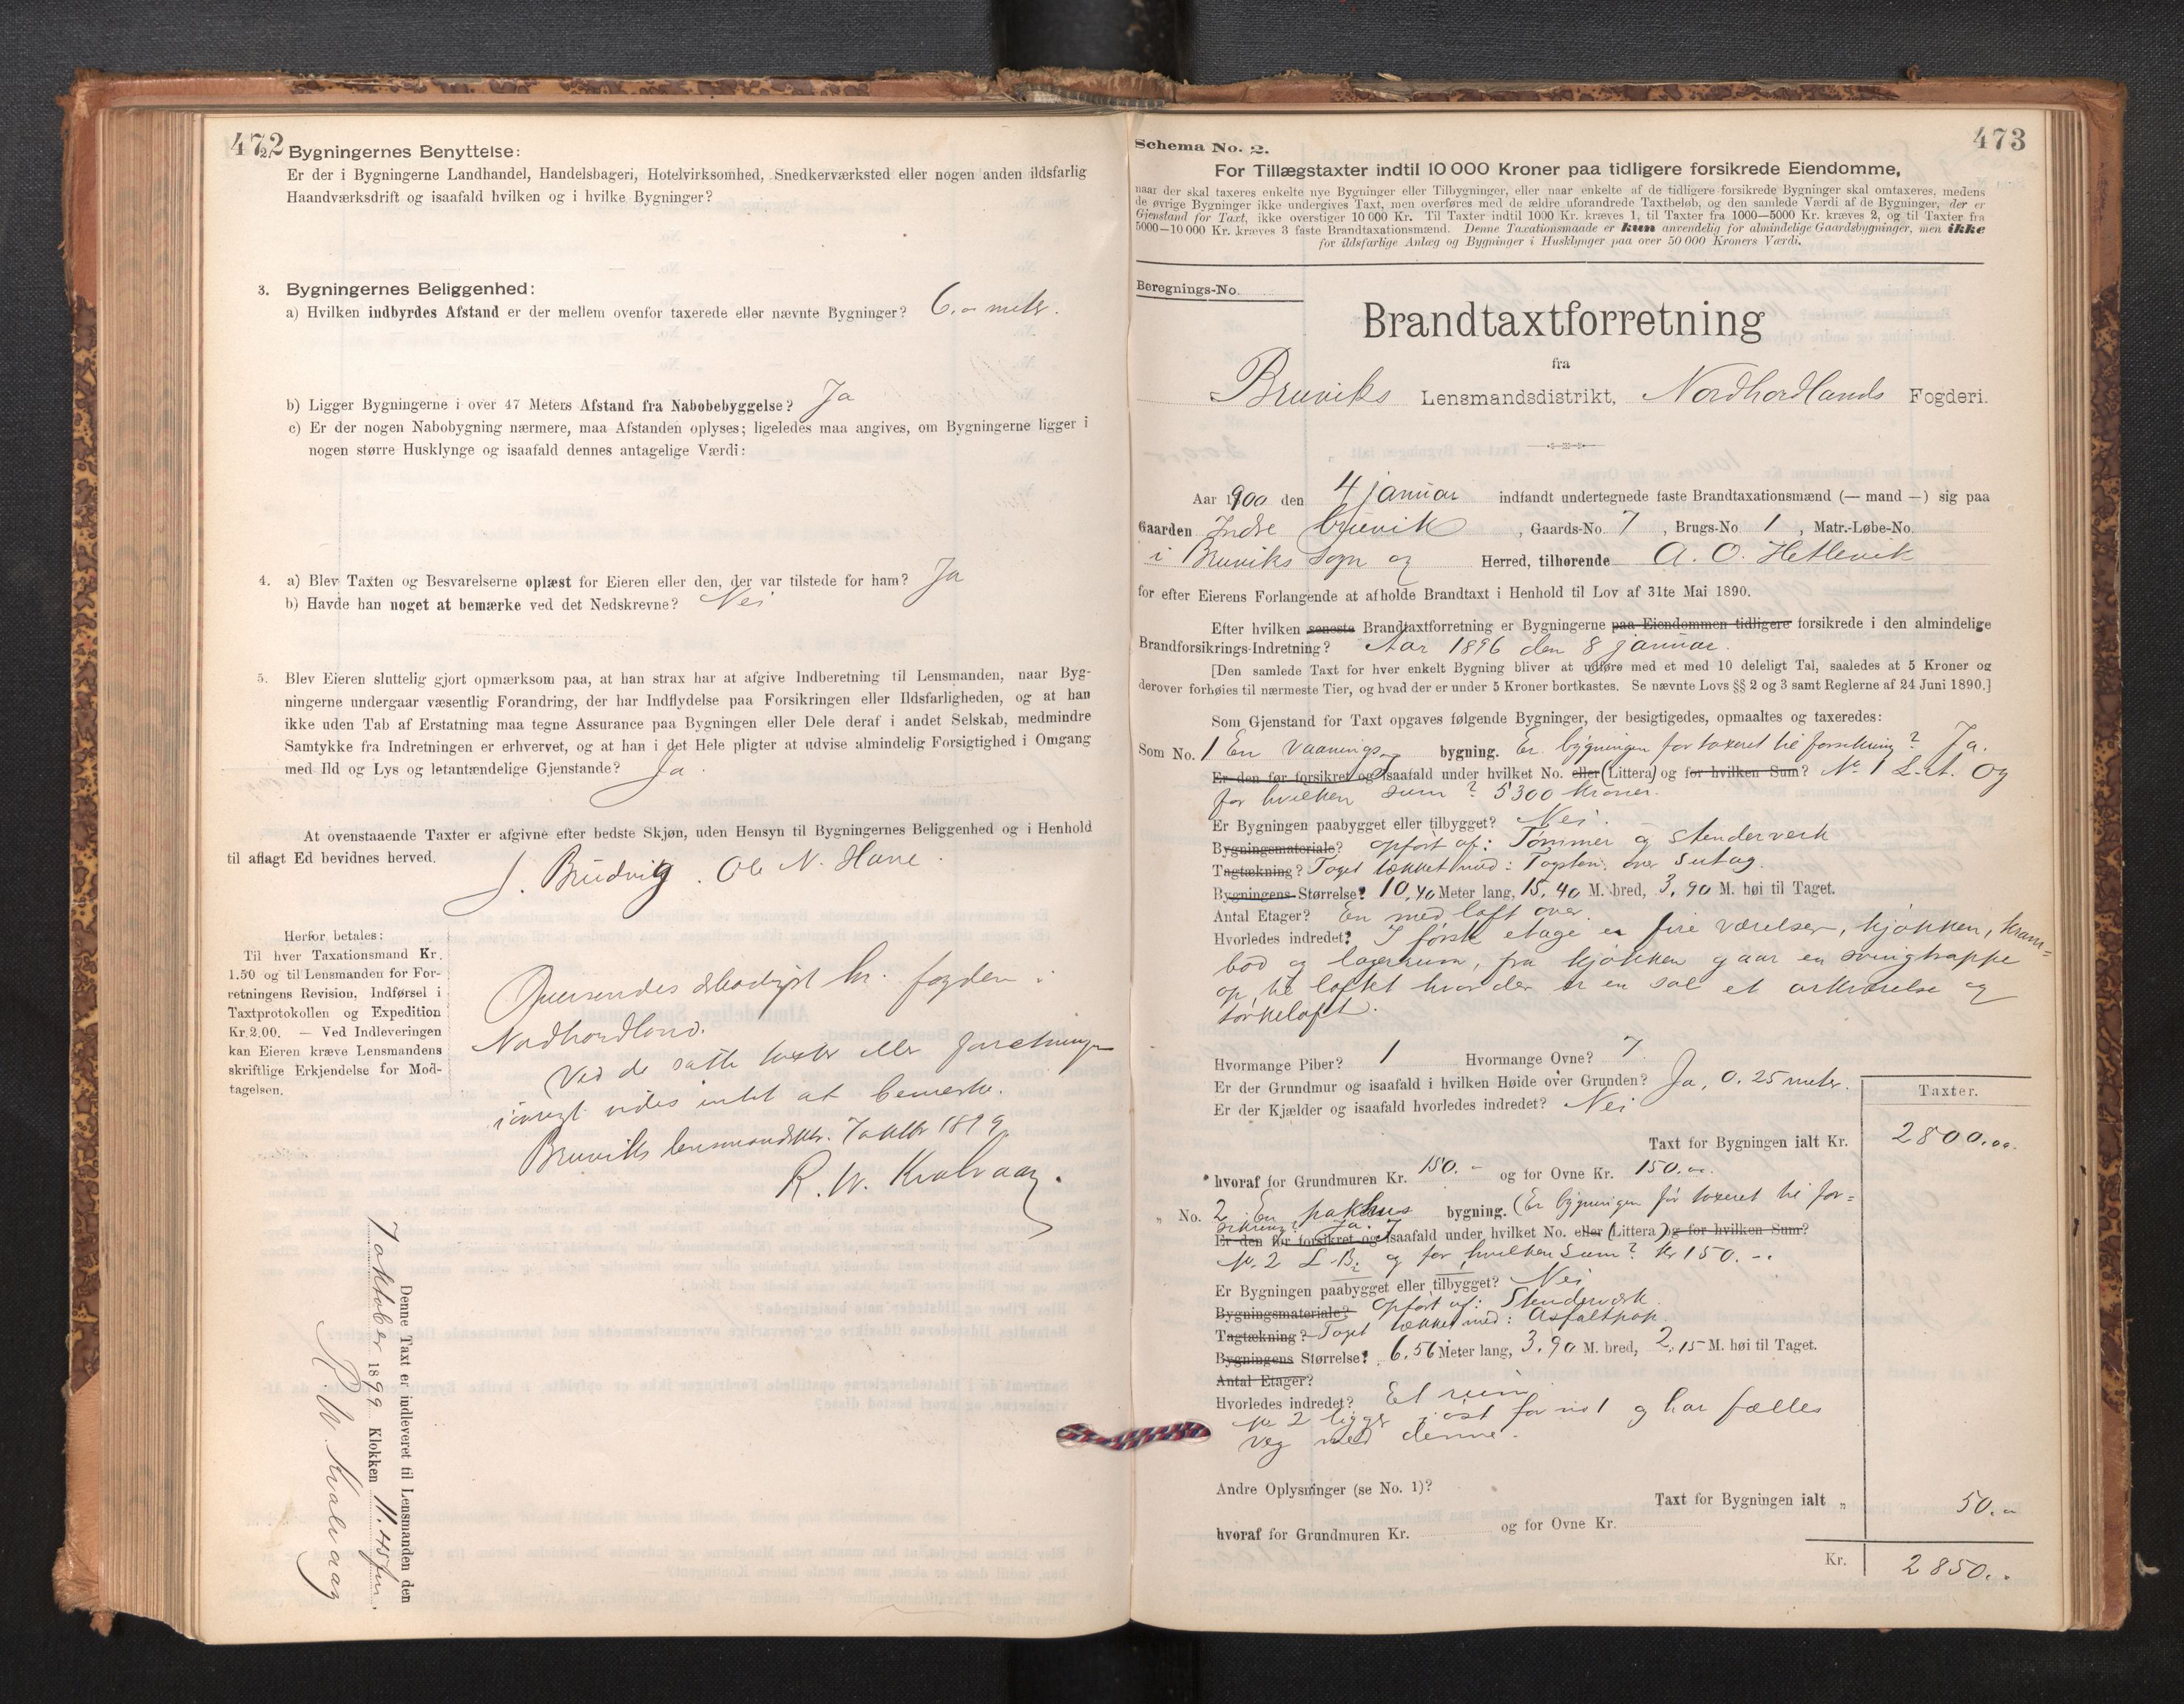 472
2. Bygningernes Benyttelse:
Er der i Bygningerne Landhandel, Handelsbageri, Hotelvirksomhed, Snedkerværksted eller nogen anden ildsfarlig
Haandværksdrift og isaafald hvilken og i hvilke Bygninger?
3. Bygningernes Beliggenhed:
a) Hvilken indbyrdes Afstand er der mellem ovenfor taxerede eller nævnte Bygninger? 6,00 meter.
b) Ligger Bygningerne i over 47 Meters Afstand fra Nabobebyggelse? Ja
c) Er der nogen Nabobygning nærmere, maa Afstanden oplyses; ligeledes maa angives, om Bygningerne ligger i
nogen større Husklynge og isaafald dennes antagelige Værdi:
4. a) Blev Taxten og Besvarelserne oplæst for Eieren eller den, der var tilstede for ham? Ja
b) Havde han noget at bemærke ved det Nedskrevne? Nei
5. Blev Eieren sluttelig gjort opmærksom paa, at han strax har at afgive Indberetning til Lensmanden, naar Byg-
ningerne undergaar væsentlig Forandring, der har Indflydelse paa Forsikringen eller Ildsfarligheden, og at han
ikke uden Tab af Erstatning maa tegne Assurance paa Bygningen eller Dele deraf i andet Selskab, medmindre
Samtykke fra Indretningen er erhvervet, og at han i det Hele pligter at udvise almindelig Forsigtighed i Omgang
med Ild og Lys og letantændelige Gjenstande? Ja.
At ovenstaaende Taxter er afgivne efter bedste Skjøn, uden Hensyn til Bygningernes Beliggenhed og i Henhold
til aflagt Ed bevidnes herved.
J. Brudvig. Ole N. Hane.
Herfor betales:
Til hver Taxationsmand Kr.
1.50 og til Lensmanden for For-
retningens Revision, Indførsel i
Taxtprotokollen og Expedition
Kr. 2.00. — Ved Indleveringen
kan Eieren kræve Lensmandens
skriftlige Erkjendelse for Mod-
tagelsen.
Oversendes ærbødigst hr. fogden i
Nordhordland.
Ved de satte taxter eller forretningen
iøvrigt vides intet at bemerke.
Bruviks lensmandsktr. 7 oktbr 1899
R. W. Kvalvaag.
Denne Taxt er indleveret til Lensmanden den
7 oktober 1899 Klokken 11.45 fm.
R. W. Kvalvaag
473
Schema No. 2.
For Tillægstaxter indtil 10 000 Kroner paa tidligere forsikrede Eiendomme,
naar der skal taxeres enkelte nye Bygninger eller Tilbygninger, eller naar enkelte af de tidligere forsikrede Bygninger skal omtaxeres, medens
de øvrige Bygninger ikke undergives Taxt, men overføres med de ældre uforandrede Taxtbeløb, og den samlede Værdi af de Bygninger, der er
Gjenstand for Taxt, ikke overstiger 10 000 Kr. Til Taxter indtil 1000 Kr. kræves 1, til Taxter fra 1000—5000 Kr. kræves 2, og til Taxter fra
5000—10 000 Kr. kræves 3 faste Brandtaxationsmænd. Denne Taxationsmaade er kun anvendelig for almindelige Gaardsbygninger, men ikke
for ildsfarlige Anlæg og Bygninger i Husklynger paa over 50 000 Kroners Værdi.
Beregnings-No.
Brandtaxtforretning
fra
Bruviks Lensmandsdistrikt, Nordhordlands Fogderi.
Aar 1900 den 4 januar indfandt undertegnede faste Brandtaxationsmænd (— mand —) sig paa
Gaarden Indre bruvik, Gaards-No. 7, Brugs-No 1, Matr.-Løbe-No.
i Bruviks Sogn og Herred, tilhørende A. O. Hetlevik
for efter Eierens Forlangende at afholde Brandtaxt i Henhold til Lov af 31te Mai 1890.
Efter hvilken seneste Brandtaxtforretning er Bygningerne paa Eiendommen tidligere forsikrede i den almindelige
Brandforsikrings-Indretning? Aar 1896 den 8 januar.
[Den samlede Taxt for hver enkelt Bygning bliver at udføre med et med 10 deleligt Tal, saaledes at 5 Kroner og
derover forhøies til nærmeste Tier, og hvad der er under 5 Kroner bortkastes. Se nævnte Lovs §§ 2 og 3 samt Reglerne af 24 Juni 1890.]
Som Gjenstand for Taxt opgaves følgende Bygninger, der besigtigedes, opmaaltes og taxeredes:
Som No. 1 En vaanings bygning. Er bygningen før taxeret til forsikring? Ja.
Er den før forsikret og isaafald under hvilket No. eller (Littera) og for hvilken Sum? No 1 L. A. Og
for hvilken sum? 5300 Kroner.
Er Bygningen paabygget eller tilbygget? Nei.
Bygningsmateriale? opført af: Tømmer og stenderverk
Tagtækning? Taget tækket med: Tagsten over sutag.
Bygningens Størrelse? 10,40 Meter lang, 15,40 M. bred, 3,90 M. høi til Taget.
Antal Etager? En med loft over.
Hvorledes indredet? I første etage er fire værelser, kjøkken, kram-
bod og lagerrum, fra kjøkken gaar en svingtrappe
op til loftet hvor der er en sal et arkværelse og
tørkeloft.
Hvormange Piber? 1 Hvormange Ovne? 7.
Er der Grundmur og isaafald i hvilken Høide over Grunden? Ja, 0.25 meter.
Er der Kjælder og isaafald hvorledes indredet? Nei
Taxter.
Taxt for Bygningen ialt Kr. 2800.00
hvoraf for Grundmuren Kr. 150.- og for Ovne Kr. 150.00
" No. 2 En pakhus bygning. (Er bygningen før taxeret til for-
sikring? Ja.
Er den før forsikret og isaafald under hvilket No. eller (Littera) og for hvilken Sum?
No. 2 L. B. og for hvilken Sum? Kr 150.-.
Er Bygningen paabygget eller tilbygget? Nei
Bygningsmateriale? opført af: Stenderverk.
Tagtækning? Taget tækket med: Asfaltpap.
Bygningens Størrelse? 6.56 Meter lang, 3.90 M. bred, 2.15 M. høi til Taget.
Antal Etager?
Hvorledes indredet? Et rum
No 2 ligger i øst for no 1 og har fælles
veg med denne.
Andre Oplysninger (se No. 1)?
Taxt for Bygningen ialt " 50.00
hvoraf for Grundmuren Kr. og for Ovne Kr.
Kr. 2850..